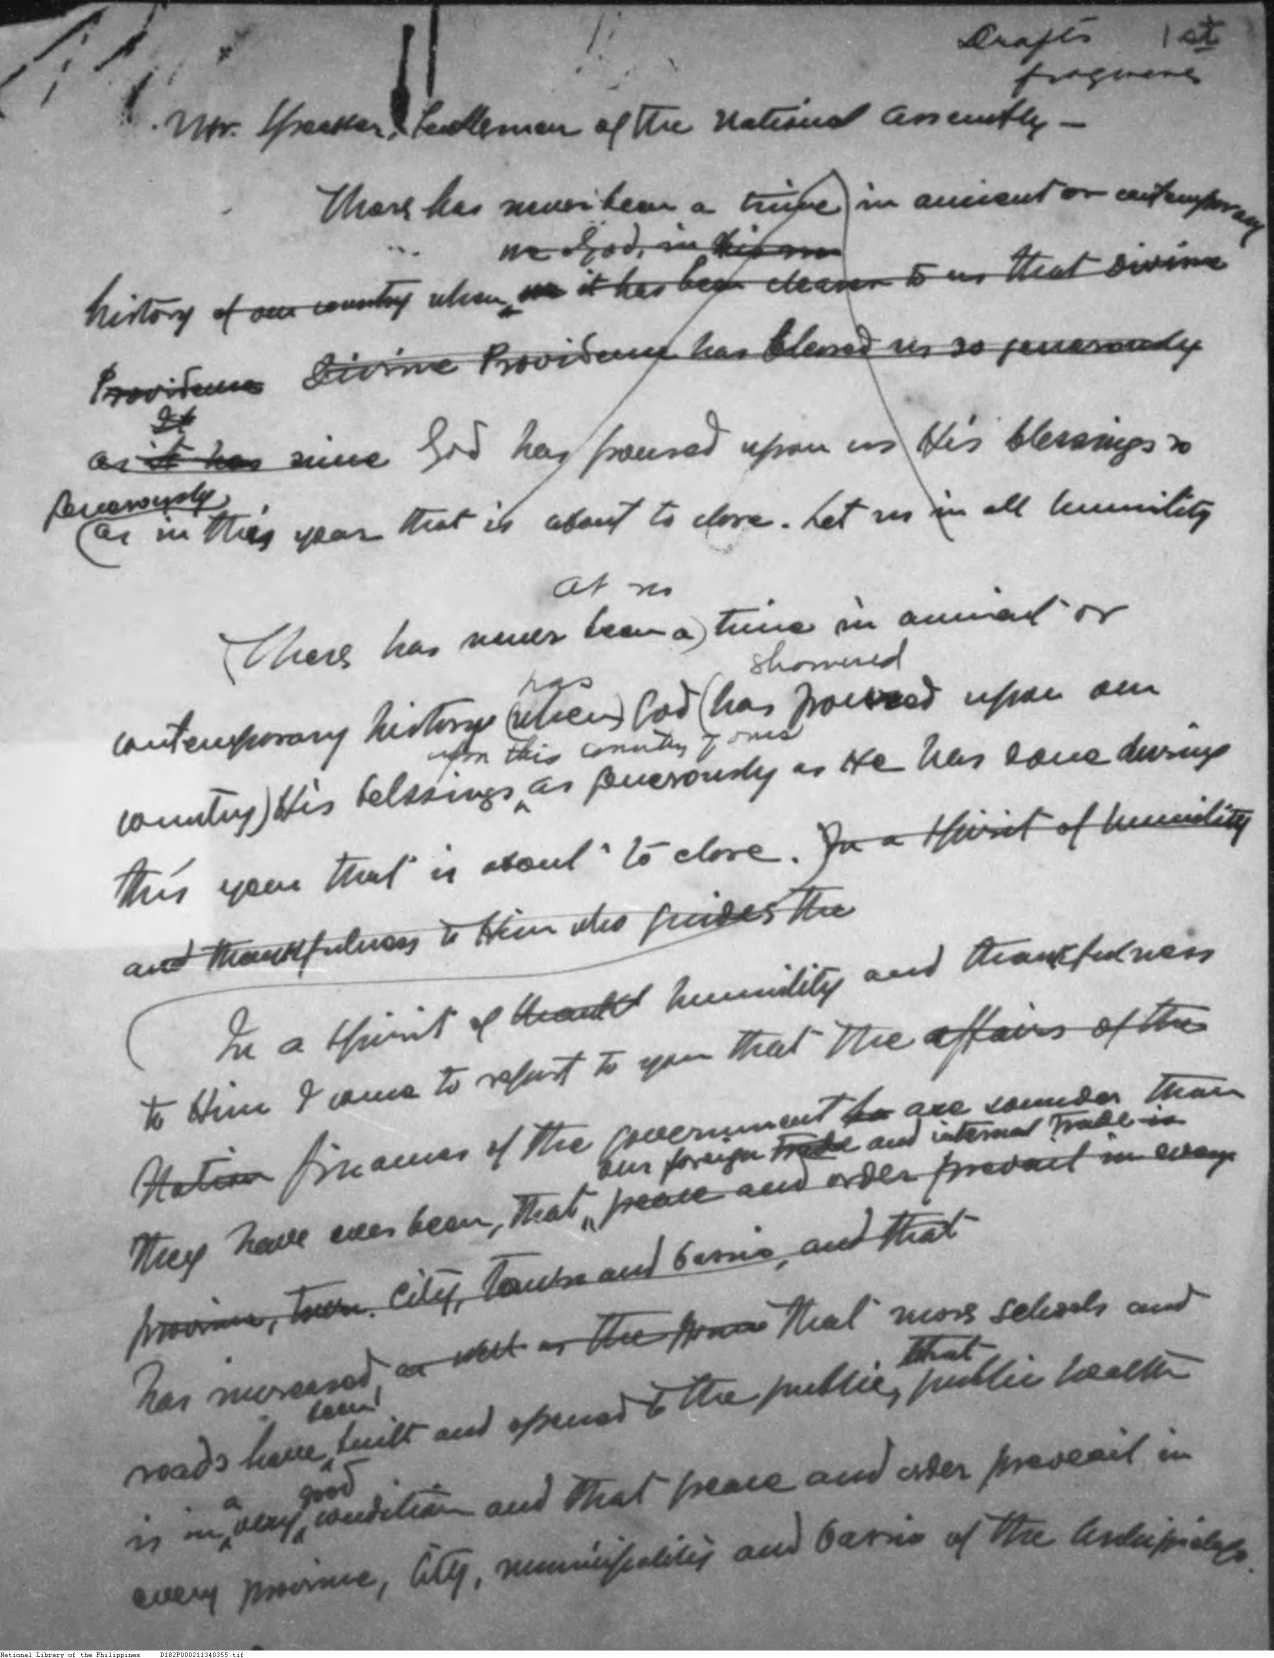 Drafts 1st
fragments
Mr. Speaker, Gentlemen of the National Assembly —
There has never been a time in ancient or contemporary
we God, in His
history of our country when it has been clearer to us that Divine
Providence Divine Providence has blessed us so generously
It
as it has since God has poured upon us His blessings so
generously
as in this year that is about to close. Let us in all humility
At no
(There has never been a) time in ancient or
showered
has
contemporary history (when) God (has poured upon our
upon this country of ours
country) His belssings as generously as He has done during
this year that is about to close. In a spirit of humility
and thankfulness to Him who guides the
In a spirit of humility and thankfulness
to Him I come to report to you that the affairs of the
Nation finances of the government are sounder than
our foreign trade and internal trade is
they have ever been, that peace and order prevail in every
province, town. City, towns and barrio, and that
has increased, as well as the that more schools and
been that
roads have built and opened to the public, public health
a good
is in very condition and that peace and order prevail in
every province, City, municipality and barrio of the Archipielago.
National Library of the Philippines D182P000211340355.tif